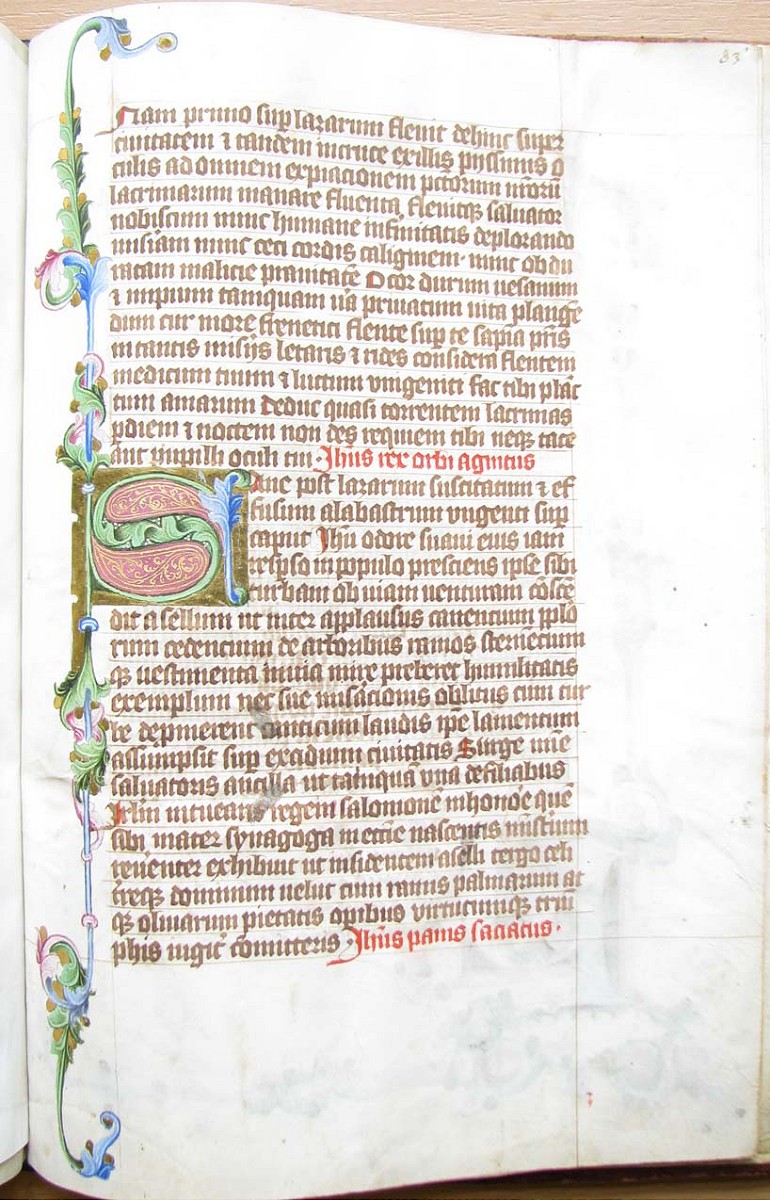 83
Nam primo sup lazarum fleuit dehinc super
ciuitatem ⁊ tandem in cruce ex illis pijssimis o
culis ad omnem expiacionem pctorum nrorũ
lacrimarum manare fluenta fleuitqꝫ saluator
nobiscum nunc humane infirmitatis deplorando
misiam nunc ceci cordis caliginem nunc obdu
ratam malicie prauitatẽ O cor durum uesanum
⁊ impium tamquam uãa priuatum uita plangẽ
dum cur more frenetici flente sup te sapiã pris
in tantis misijs letaris ⁊ rides considera flentem
medicum tuum ⁊ luctum vnigeniti fac tibi planc
tum amarum Deduc quasi torrentem lacrimas
p diem ⁊ noctem non des requiem tibi neqꝫ tace
at pupilla oculi tui Jhus rex orbi agnitus
Sane post lazarum suscitatum ⁊ ef
fusum alabastrum vngenti sup
caput Jhu odore suaui eius iam
resperso in populo presciens ipse sibi
turbam obuiam uenturam cõscẽ
dit asellum ut inter applausus canencium pplo
rum cedencium de arboribus ramos sternecium
qꝫ uestimenta in uia mire preberet humilitatis
exemplum nec sue misacionis oblitus cum tur
be depmerent canticum laudis ipe lamentum
assumpsit sup excidium ciuitatis Surge nũc
saluatoris ancilla ut tamquã vna de filiabus
Jrlm intuearis regem salomonẽ in honoẽ quẽ
sibi mater synagoga
reuerenter exhibuit ut insidentem aselli tergo celi
terreqꝫ dominum uelut cum ramis palmarum at
qꝫ oliuarum pietatis opibus virtutumqꝫ trium
phis iugit comitteris Jhus panis saciatus